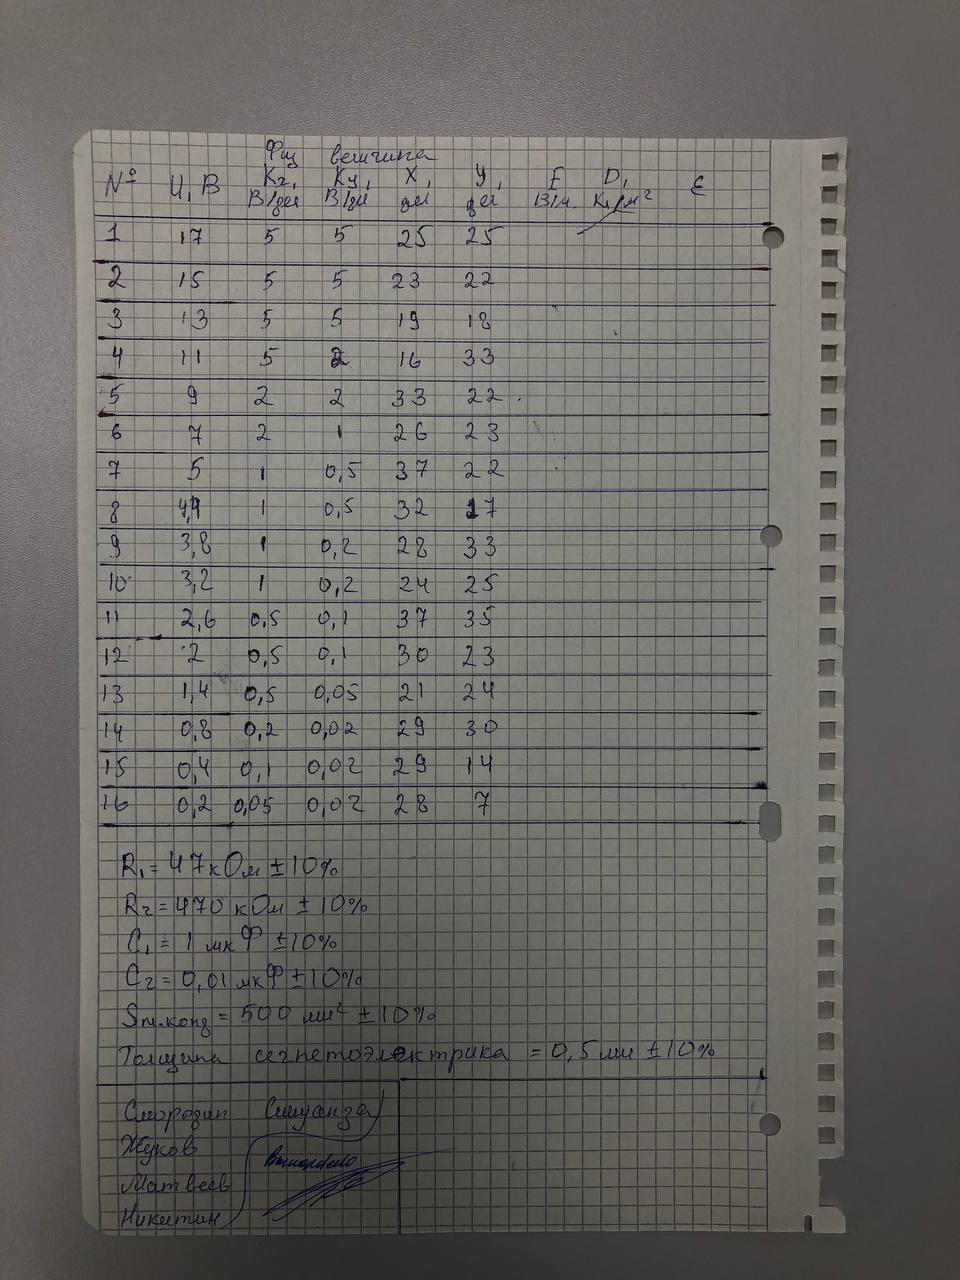 Физ величина
№ U, В Kx, В/дел Ky, В/дел X, дел Y, дел E В/м. D, Кл/м² ε
1 17 5 5 25 25
2 15 5 5 23 22
3 13 5 5 19 18
4 11 5 2 16 33
5 9 2 2 33 22
6 7 2 1 26 23
7 5 1 0,5 37 22
8 4,4 1 0,5 32 27
9 3,8 1 0,2 28 33
10 3,2 1 0,2 24 25
11 2,6 0,5 0,1 37 35
12 2 0,5 0,1 30 23
13 1,4 0,5 0,05 21 24
14 0,8 0,2 0,02 29 30
15 0,4 0,1 0,02 29 14
16 0,2 0,05 0,02 28 7
R₁ = 47 кОм ±10%
R₂ = 470 кОм ±10%
C₁ = 1 мкФ ±10%
C₂ = 0,01 мкФ ±10%
Sпл.конд = 500 мм² ±10%
Толщина сегнетоэлектрика = 0,5 мм ±10%
Смородин
Жуков
Матвеев
Никитин